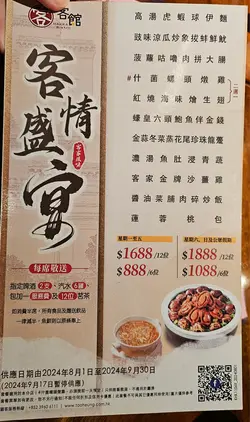 客 客館
客情盛宴
客家風味
每席敬送
指定啤酒6支、汽水6罐
包加一
及12位茗茶
高湯龍蝦球伊麵
豉味涼瓜炒象拔蚌鮮魷
菠蘿咕嚕肉拼大腸
#什菌螺頭燉雞
紅燒海味燴生翅
二選一
蠔皇六頭鮑魚伴金錢
金蒜冬菜蒸花尾珍珠龍躉
濃湯魚肚浸青蔬
客家金牌沙薑雞
醬油菜脯肉碎炒飯
蓮蓉桃包
星期一至五
$1688/12位
$888/6位
星期六、日及公眾假期
$1888/12位
$1088/6位
供應日期由2024年8月1日至2024年9月30日
(2024年9月17日暫停供應)